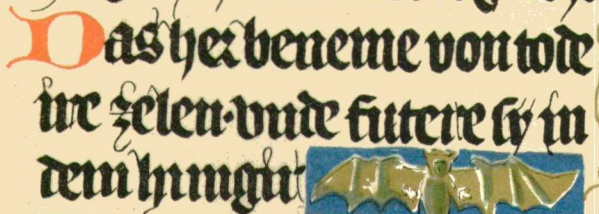 Das her beneme von tode
ire zelen · vnde futere sy in
dem hungir